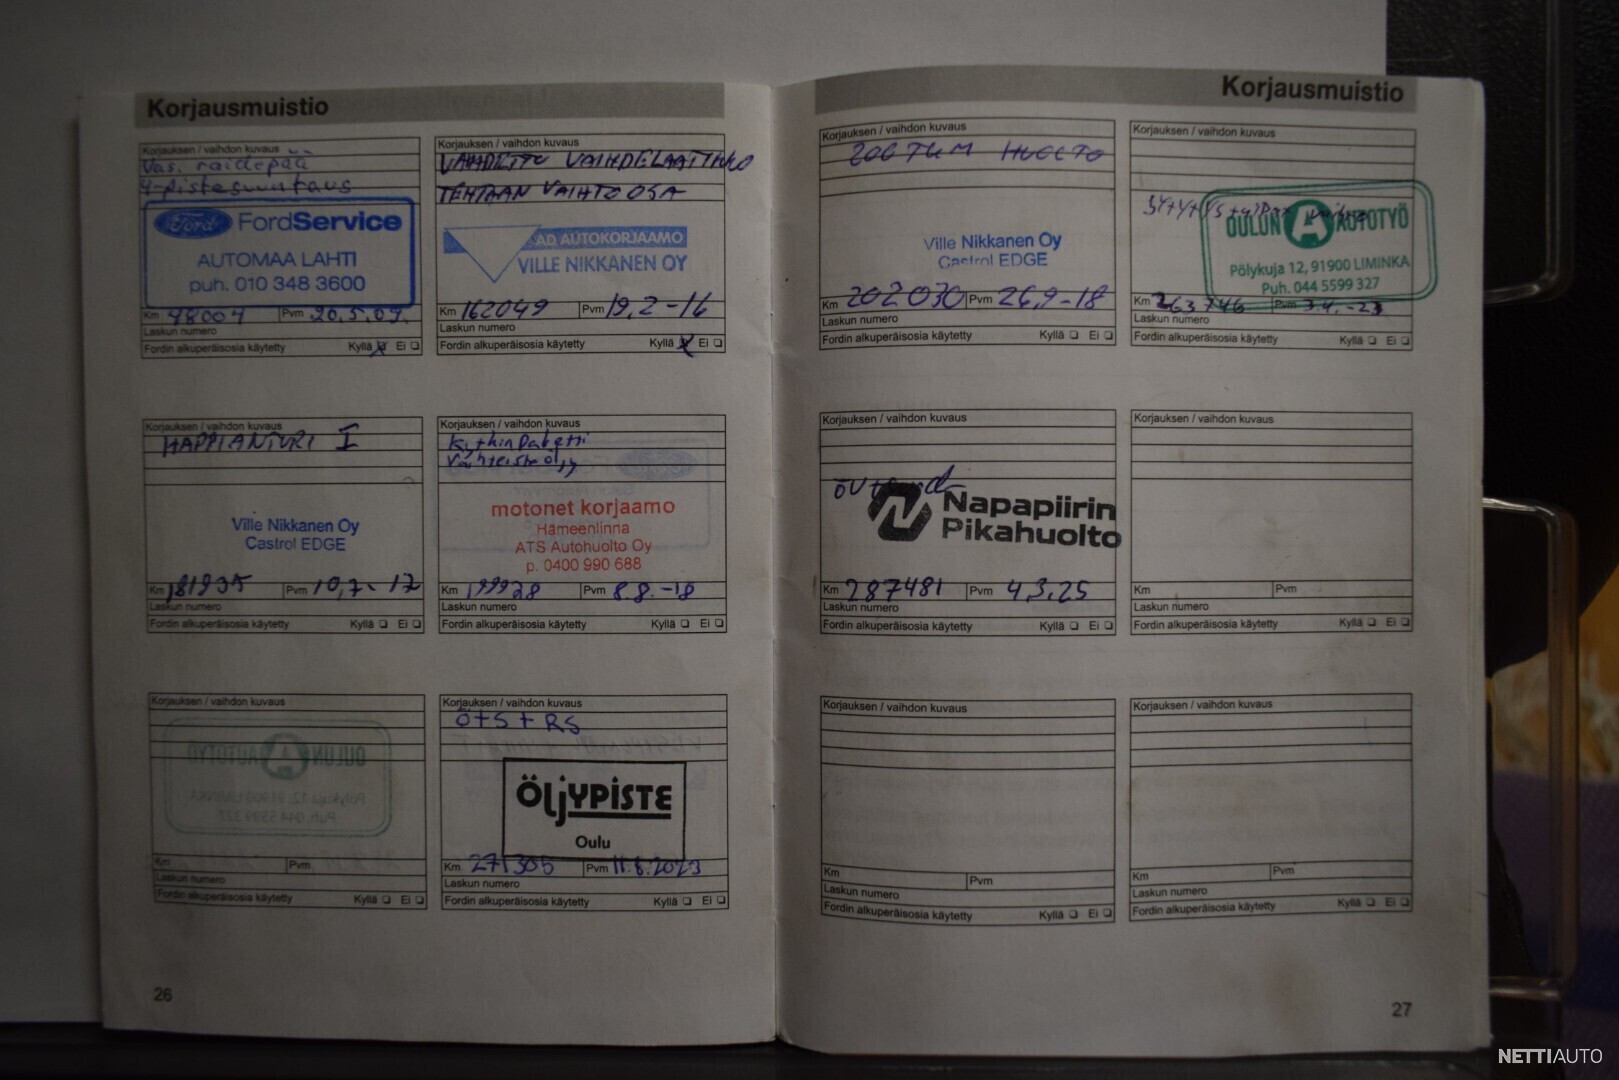 Korjausmuistio
Korjauksen / vaihdon kuvaus
Vas. raidepää
4-pistesuuntaus
Ford FordService
AUTOMAA LAHTI
puh. 010 348 3600
Km 98004 Pvm 20.5.09.
Laskun numero
Fordin alkuperäisosia käytetty Kyllä Ei
Korjauksen / vaihdon kuvaus
VAIHDETTU VAIHDELAATIKKO
TEHTAAN VAIHTOOSA
AD AUTOKORJAAMO
VILLE NIKKANEN OY
Km 162049 Pvm 19,2-16
Laskun numero
Fordin alkuperäisosia käytetty Kyllä Ei
Korjauksen / vaihdon kuvaus
HAPPIANTURI I
Ville Nikkanen Oy
Castrol EDGE
Km 181935 Pvm 10,7-17
Laskun numero
Fordin alkuperäisosia käytetty Kyllä Ei
Korjauksen / vaihdon kuvaus
Kytkinpaketti
Vaihteistoöljy
motonet korjaamo
Hämeenlinna
ATS Autohuolto Oy
p. 0400 990 688
Km 199928 Pvm 8.8.-18
Laskun numero
Fordin alkuperäisosia käytetty Kyllä Ei
Korjauksen / vaihdon kuvaus
Km Pvm
Laskun numero
Fordin alkuperäisosia käytetty Kyllä Ei
Korjauksen / vaihdon kuvaus
Ö+S+RS
ÖLJYPISTE
Oulu
Km 271305 Pvm 11.6.2023
Laskun numero
Fordin alkuperäisosia käytetty Kyllä Ei
26
Korjausmuistio
Korjauksen / vaihdon kuvaus
200 TKM HUOLTO
Ville Nikkanen Oy
Castrol EDGE
Km 202030 Pvm 26,9-18
Laskun numero
Fordin alkuperäisosia käytetty Kyllä Ei
Korjauksen / vaihdon kuvaus
OULUN A AUTOTYÖ
Pölykuja 12, 91900 LIMINKA
Puh. 044 5599 327
Km 263746 Pvm 3.4.-23
Laskun numero
Fordin alkuperäisosia käytetty Kyllä Ei
Korjauksen / vaihdon kuvaus
Napapiirin
Pikahuolto
Km 287481 Pvm 4.3.25
Laskun numero
Fordin alkuperäisosia käytetty Kyllä Ei
Korjauksen / vaihdon kuvaus
Km Pvm
Laskun numero
Fordin alkuperäisosia käytetty Kyllä Ei
Korjauksen / vaihdon kuvaus
Km Pvm
Laskun numero
Fordin alkuperäisosia käytetty Kyllä Ei
Korjauksen / vaihdon kuvaus
Km Pvm
Laskun numero
Fordin alkuperäisosia käytetty Kyllä Ei
27
NETTIAUTO